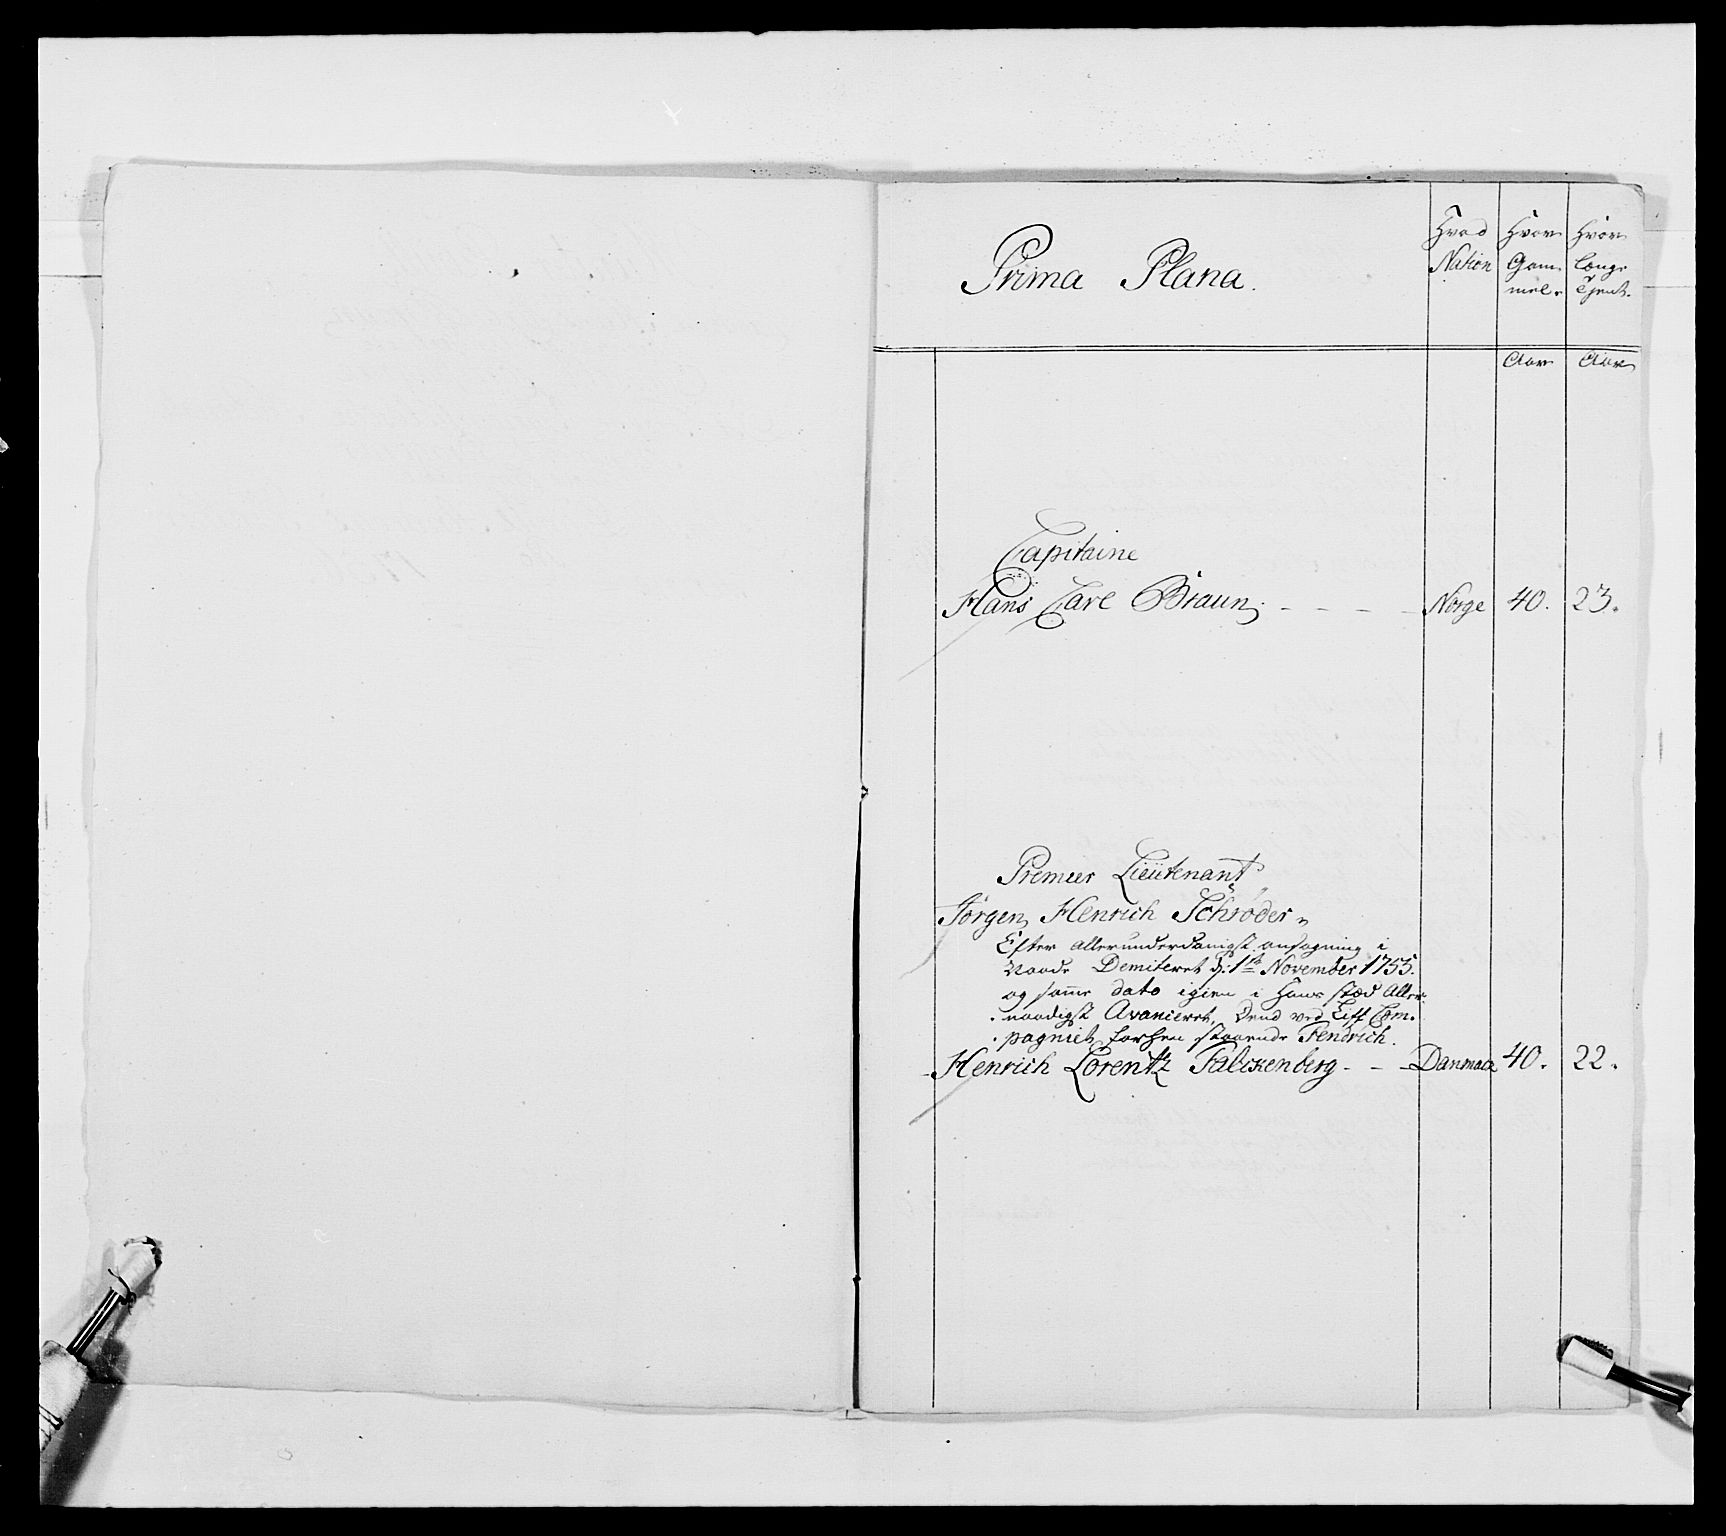 Prima Plana.
Hvad Nation
Hvor Gam-mel.
Hvor længe Tjent.
Aar Aar
Capitaine
Hans Carl Braun. Norge 40. 23.
Premier Lieütenant
Jørgen Henrich Schrøder.
Efter allerunderdanigst ansøgning i
Naade Demiteret d: 1ste November 1755.
og samme dato igien i Hans stæd Aller-
naadigst Avanceret, Dend ved Liff Com-
pagniet forhen staaende Fendrich.
Henrich Lorentz Falckenberg - - - Danmarck 40. 22.